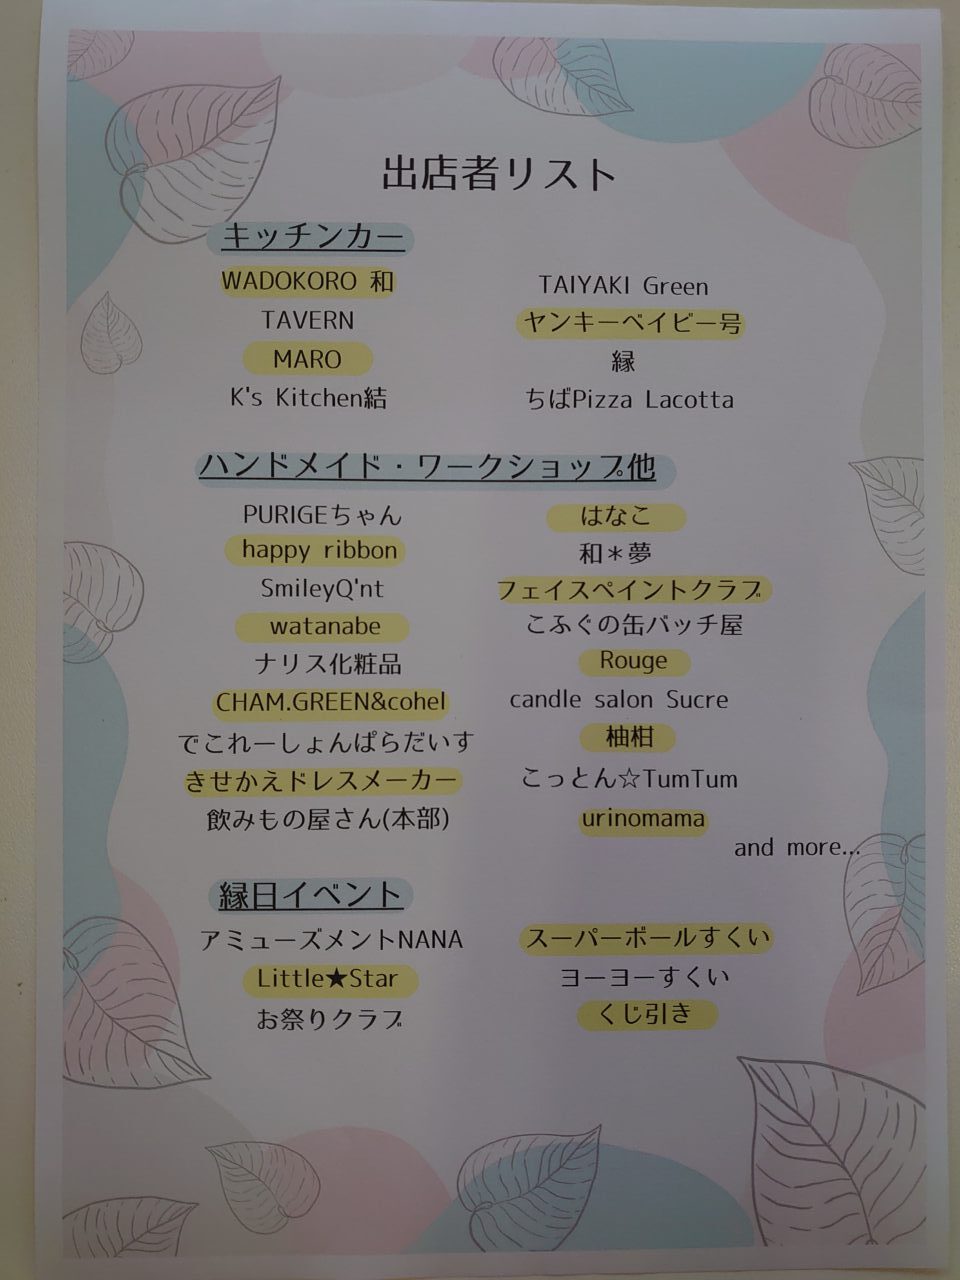 出店者リスト
キッチンカー
WADOKORO 和
TAVERN
MARO
K's Kitchen結
TAIYAKI Green
ヤンキーベイビー号
縁
ちばPizza Lacotta
ハンドメイド・ワークショップ他
PURIGEちゃん
happy ribbon
SmileyQ'nt
watanabe
ナリス化粧品
CHAM.GREEN&cohel
でこれーしょんぱらだいす
きせかえドレスメーカー
飲みもの屋さん(本部)
はなこ
和＊夢
フェイスペイントクラブ
こふぐの缶バッチ屋
Rouge
candle salon Sucre
柚柑
こっとん☆TumTum
urinomama
and more...
縁日イベント
アミューズメントNANA
Little★Star
お祭りクラブ
スーパーボールすくい
ヨーヨーすくい
くじ引き